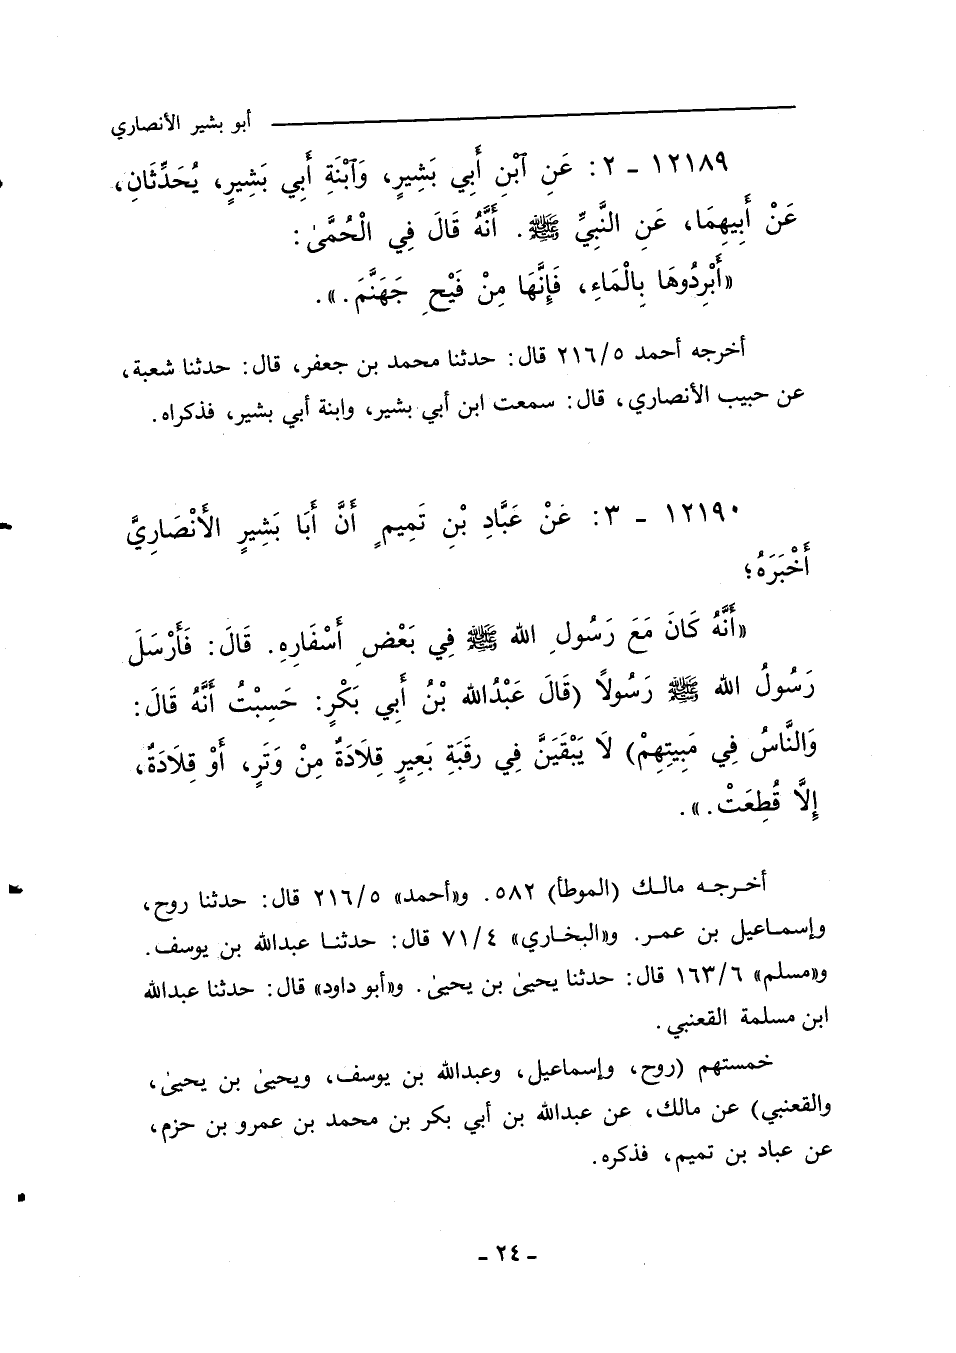 أبو بشير الأنصاري
١٢١٨٩ - ٢: عَنِ ٱبْنِ أَبِي بَشِيرٍ، وَٱبْنَةِ أَبِي بَشِيرٍ، يُحَدِّثَانِ،
عَنْ أَبِيهِمَا، عَنِ النَّبِيِّ ﷺ. أَنَّهُ قَالَ فِي الْحُمَّىٰ:
«أَبْرِدُوهَا بِالْمَاءِ، فَإِنَّهَا مِنْ فَيْحِ جَهَنَّمَ.».
أخرجه أحمد ٢١٦/٥ قال: حدثنا محمد بن جعفر، قال: حدثنا شعبة،
عن حبيب الأنصاري، قال: سمعت ابن أبي بشير، وابنة أبي بشير، فذكراه.
١٢١٩٠ - ٣: عَنْ عَبَّادِ بْنِ تَمِيمٍ أَنَّ أَبَا بَشِيرٍ الأَنْصَارِيَّ
أَخْبَرَهُ؛
«أَنَّهُ كَانَ مَعَ رَسُولِ الله ﷺ فِي بَعْضِ أَسْفَارِهِ. قَالَ: فَأَرْسَلَ
رَسُولُ الله ﷺ رَسُولاً (قَالَ عَبْدُالله بْنُ أَبِي بَكْرٍ: حَسِبْتُ أَنَّهُ قَالَ:
وَالنَّاسُ فِي مَبِيتِهِمْ) لَا يَبْقَيَنَّ فِي رَقَبَةِ بَعِيرٍ قِلَادَةٌ مِنْ وَتَرٍ، أَوْ قِلَادَةٌ،
إِلَّا قُطِعَتْ.».
أخرجه مالك (الموطأ) ٥٨٢. و«أحمد» ٢١٦/٥ قال: حدثنا روح،
وإسماعيل بن عمر. و«البخاري» ٧١/٤ قال: حدثنا عبدالله بن يوسف.
و«مسلم» ١٦٣/٦ قال: حدثنا يحيىٰ بن يحيىٰ. و«أبو داود» قال: حدثنا عبدالله
ابن مسلمة القعنبي.
خمستهم (روح، وإسماعيل، وعبدالله بن يوسف، ويحيىٰ بن يحيىٰ،
والقعنبي) عن مالك، عن عبدالله بن أبي بكر بن محمد بن عمرو بن حزم،
عن عباد بن تميم، فذكره.
- ٢٤ -